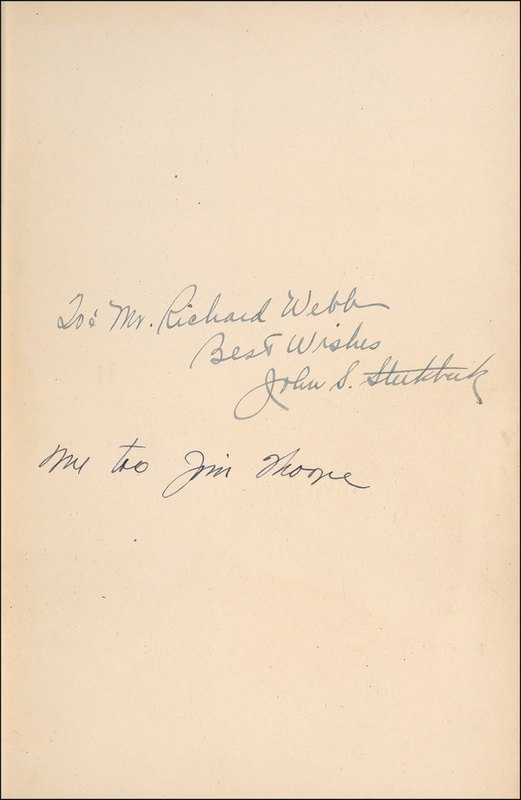 To: Mr. Richard Webb
Best Wishes
John S. Steckbeck
Me too Jim Thorpe